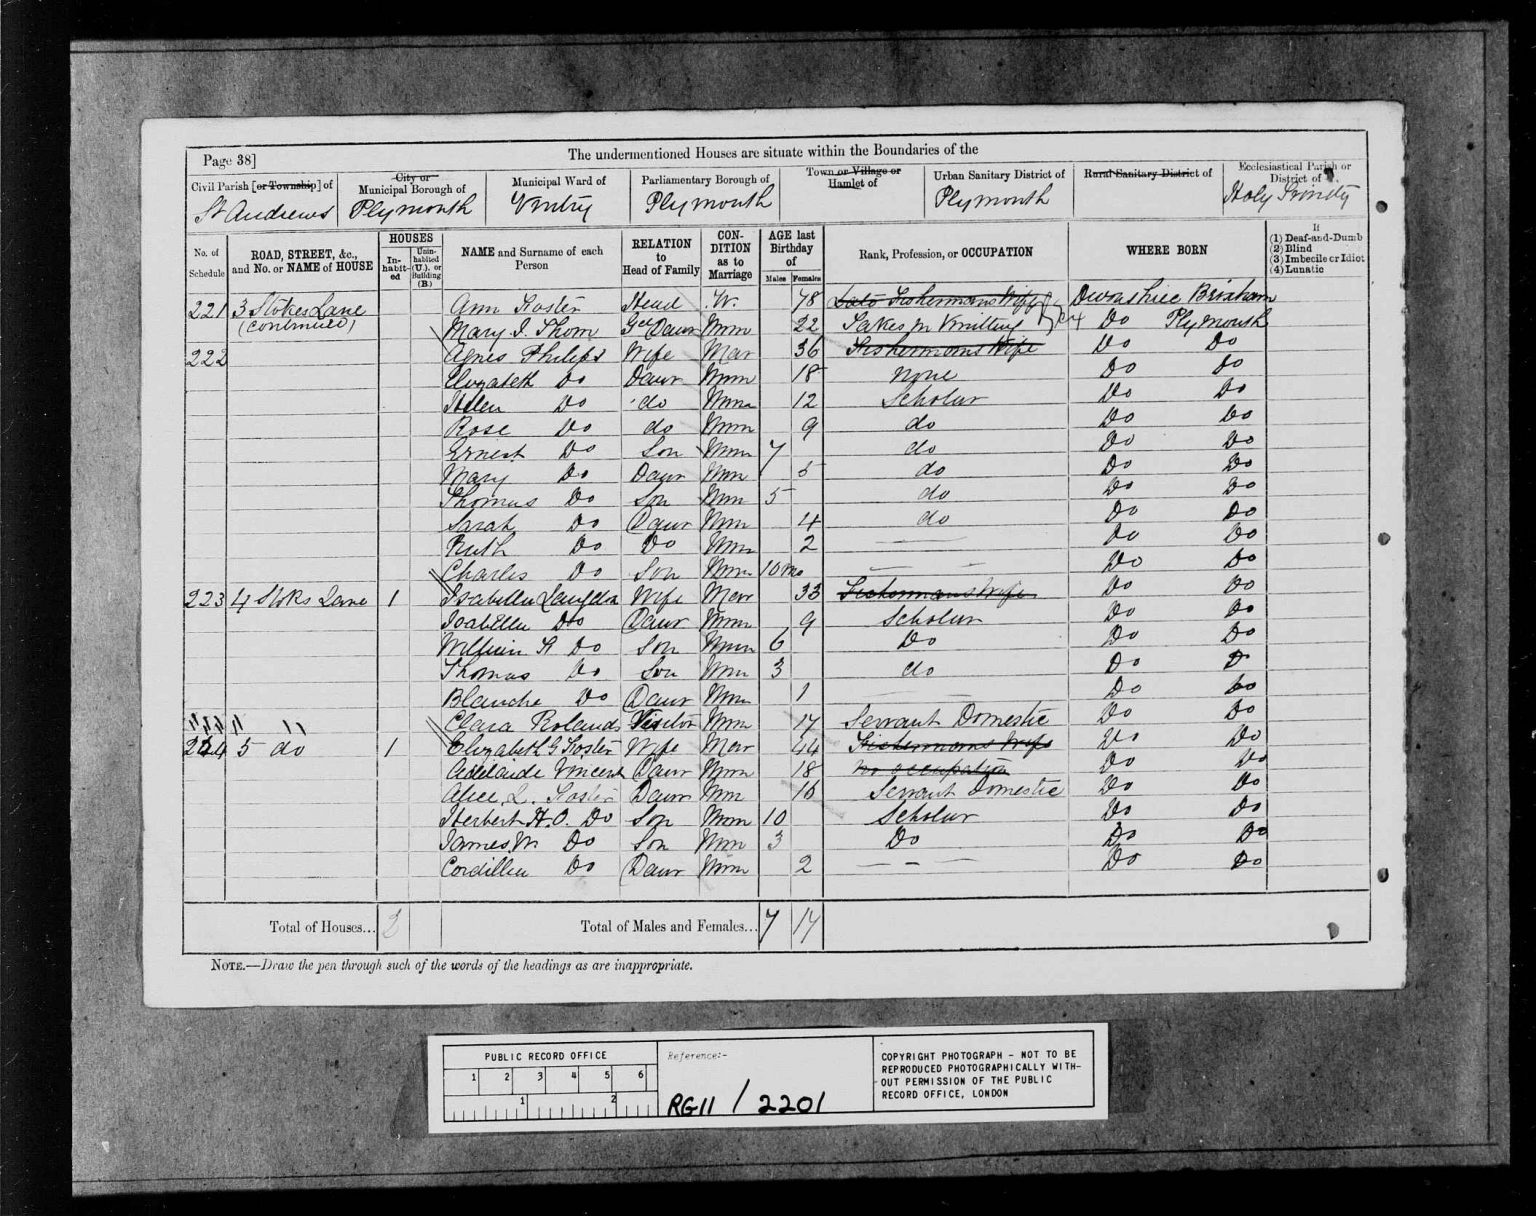 Page 38]
The undermentioned Houses are situate within the Boundaries of the
Civil Parish [or Township] of
City or
Municipal Borough of
Municipal Ward of
Parliamentary Borough of
Town or Village or
Hamlet of
Urban Sanitary District of
Rural Sanitary District of
Ecclesiastical Parish or
District of
St Andrews Plymouth Vintry Plymouth Plymouth Holy Trinity
No. of Schedule
ROAD, STREET, &c., and No. or NAME of HOUSE
HOUSES
In-habit-ed
Unin-habited (U.), or Building (B.)
NAME and Surname of each Person
RELATION to Head of Family
CON-DITION as to Marriage
AGE last Birthday of
Males Females
Rank, Profession, or OCCUPATION
WHERE BORN
If
(1) Deaf-and-Dumb
(2) Blind
(3) Imbecile or Idiot
(4) Lunatic
221 3 Stokes Lane Ann Foster Head W. 78 Late Fishermans Wife Devonshire Brixham
(continued) Mary J. Thom Gd Daur Unm 22 Takes in Knitting Do Plymouth
222 Agnes Philips Wife Mar 36 Fishermans Wife Do Do
Elizabeth Do Daur Unm 18 none Do Do
Hellen Do do Unm 12 Scholar Do Do
Rose Do do Unm 9 do Do Do
Ernest Do Son Unm 7 do Do Do
Mary Do Daur Unm 5 do Do Do
Thomas Do Son Unm 5 do Do Do
Sarah Do Daur Unm 4 do Do Do
Ruth Do Do Unm 2 Do Do
Charles Do Son Unm 10 mo Do Do
223 4 Stoks Lane 1 Isabella Wife Mar 33 Fishermans Wife Do Do
Isabella Do Daur Unm 9 Scholar Do Do
William H Do Son Unm 6 Do Do Do
Thomas Do Son Unm 3 do Do Do
Blanche Do Daur Unm 1 Do Do
Clara Rolands Visitor Unm 17 Servant Domestic Do Do
224 5 do 1 Elizabeth G Foster Wife Mar 44 Fishermans Wife Do Do
Adelaide Vincent Daur Unm 18 no occupation Do Do
Alice L. Foster Daur Unm 16 Servant Domestic Do Do
Herbert H. O. Do Son Unm 10 Scholar Do Do
James W Do Son Unm 3 Do Do Do
Cordillia Do Daur Unm 2 Do Do
Total of Houses... 2 Total of Males and Females... 7 17
NOTE.—Draw the pen through such of the words of the headings as are inappropriate.
PUBLIC RECORD OFFICE
1 2 3 4 5 6
1 2
Reference:-
RG11 / 2201
COPYRIGHT PHOTOGRAPH - NOT TO BE
REPRODUCED PHOTOGRAPHICALLY WITH-
OUT PERMISSION OF THE PUBLIC
RECORD OFFICE, LONDON